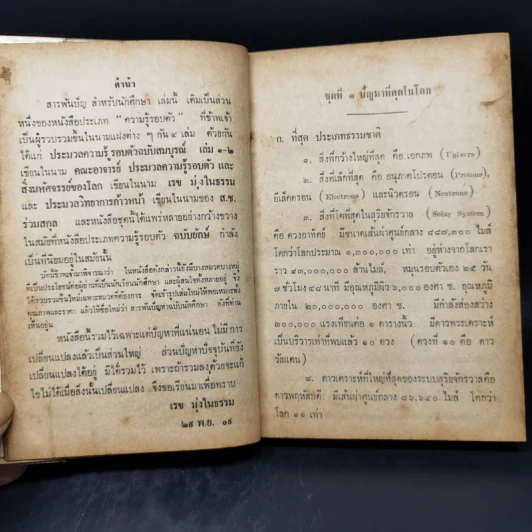 คำนำ
สารพันปัญ สำหรับนักศึกษา เล่มนี้ เดิมเป็นส่วน
หนึ่งของหนังสือประเภท "ความรู้รอบตัว" ที่ข้าพเจ้า
เป็นผู้รวบรวมขึ้นในนามแฝงต่าง ๆ กัน ๔ เล่ม ด้วยกัน
ได้แก่ ประมวลความรู้รอบตัวฉบับสมบูรณ์ เล่ม ๑-๒
เขียนในนาม คณะอาจารย์ ประมวลความรู้รอบตัว และ
สิ่งมหัศจรรย์ของโลก เขียนในนาม เรข มุ่งในธรรม
และ ประมวลวิทยาการก้าวหน้า เขียนในนามของ ส.ช.
ร่วมสกุล และหนังสือชุดนี้ได้แพร่หลายอย่างกว้างขวาง
ในสมัยที่หนังสือประเภทความรู้รอบตัว ฉบับยักษ์ กำลัง
เป็นที่นิยมอยู่ในสมัยนั้น
บัดนี้ข้าพเจ้ามาพิจารณาว่า ในหนังสือดังกล่าวนี้ยังมีบางหมวดบางหมู่
ที่เป็นประโยชน์ต่อผู้อ่านที่เป็นนักเรียนนักศึกษา และผู้สนใจทั้งหลายอยู่ จึง
ได้รวบรวมขึ้นใหม่เฉพาะหมวดที่ต้องการ จัดเข้ารูปเล่มใหม่ให้พอเหมาะสม
คุณภาพและราคา แล้วให้ชื่อใหม่ว่า สารพันปัญหาฉบับนักศึกษา ดังที่ท่าน
เห็นอยู่นี้
หนังสือนี้รวมไว้เฉพาะแต่ปัญหาที่แน่นอน ไม่มี การ
เปลี่ยนแปลงแล้วเป็นส่วนใหญ่ ส่วนปัญหาปัจจุบันที่ยัง
เปลี่ยนแปลงได้อยู่ มิได้รวมไว้ เพราะถ้ารวมลงด้วยจะแก้
ไขไม่ได้เมื่อสิ่งนั้นเปลี่ยนแปลง จึงขอเรียนมาเพื่อทราบ
เรข มุ่งในธรรม
๒๕ พ.ย. ๑๕
ชุดที่ ๑ ปัญหาที่สุดในโลก
ก. ที่สุด ประเภทธรรมชาติ
๑. สิ่งที่กว้างใหญ่ที่สุด คือ เอกภพ (Univers)
๒. สิ่งที่เล็กที่สุด คือ อนุภาคโปรตอน (Protons),
อีเล็คตรอน (Electrons) และนิวตรอน (Neutrons)
๓. สิ่งที่โตที่สุดในสุริยจักรวาล (Solay System)
คือ ดวงอาทิตย์ มีขนาดเส้นผ่าศูนย์กลาง ๘๘๗,๓๐๐ ไมล์
โตกว่าโลกประมาณ ๑,๓๐๐,๐๐๐ เท่า อยู่ห่างจากโลกเรา
ราว ๙๓,๐๐๐,๐๐๐ ล้านไมล์, หมุนรอบตัวเอง ๒๕ วัน
๗ ชั่วโมง ๔๘ นาที มีอุณหภูมิผิว ๖,๐๐๐ องศา ซ. อุณหภูมิ
ภายใน ๒๐,๐๐๐,๐๐๐ องศา ซ. มีกำลังส่องสว่าง
๓๐๐,๐๐๐ แรงเทียนต่อ ๑ ตารางนิ้ว มีดาวพระเคราะห์
เป็นบริวารเท่าที่พบแล้ว ๑๐ ดวง (ดวงที่ ๑๐ คือ ดาว
วัลแคน)
๔. ดาวเคราะห์ที่ใหญ่ที่สุดของระบบสุริยจักรวาลคือ
ดาวพฤหัสบดี มีเส้นผ่าศูนย์กลาง ๘๖,๖๔๐ ไมล์ โตกว่า
โลก ๑๐ เท่า